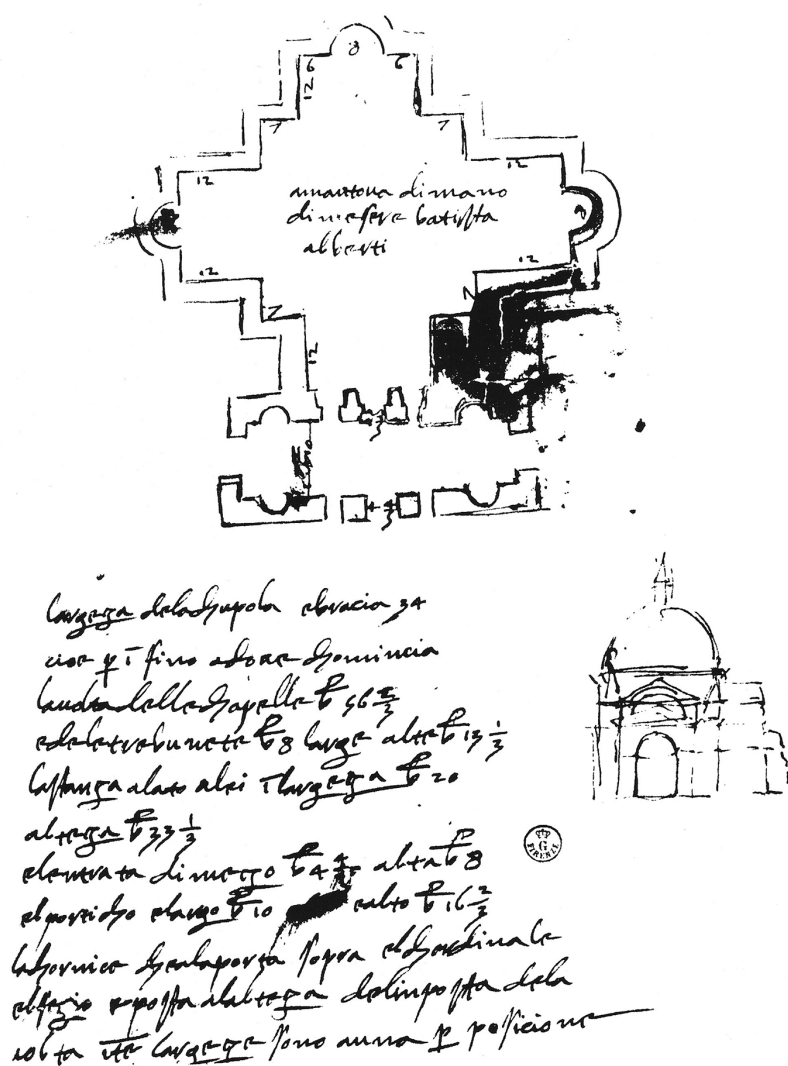 8
6
6
12
7
7
12
12
amantova di mano
di mesere batista
alberti
12
12
7
7
12
3
3
largeza dela chupola ebracia 34
cioe p i fino adove chomincia
laudia delle chapelle b 56 2/3
edele trebunete b 8 large alte b 13 1/3
la stanza alato alei i largeza b 20
alteza b 33 1/3
elentrata di mezo b 4 alta b 8
el porticho elargo b 10 ealto b 16 2/3
la chornice chealaporta sopra el chardinale
elfregio eposta alalteza delinposta dela
volta ite largeze sono auna p posicione
G
FIRENZE